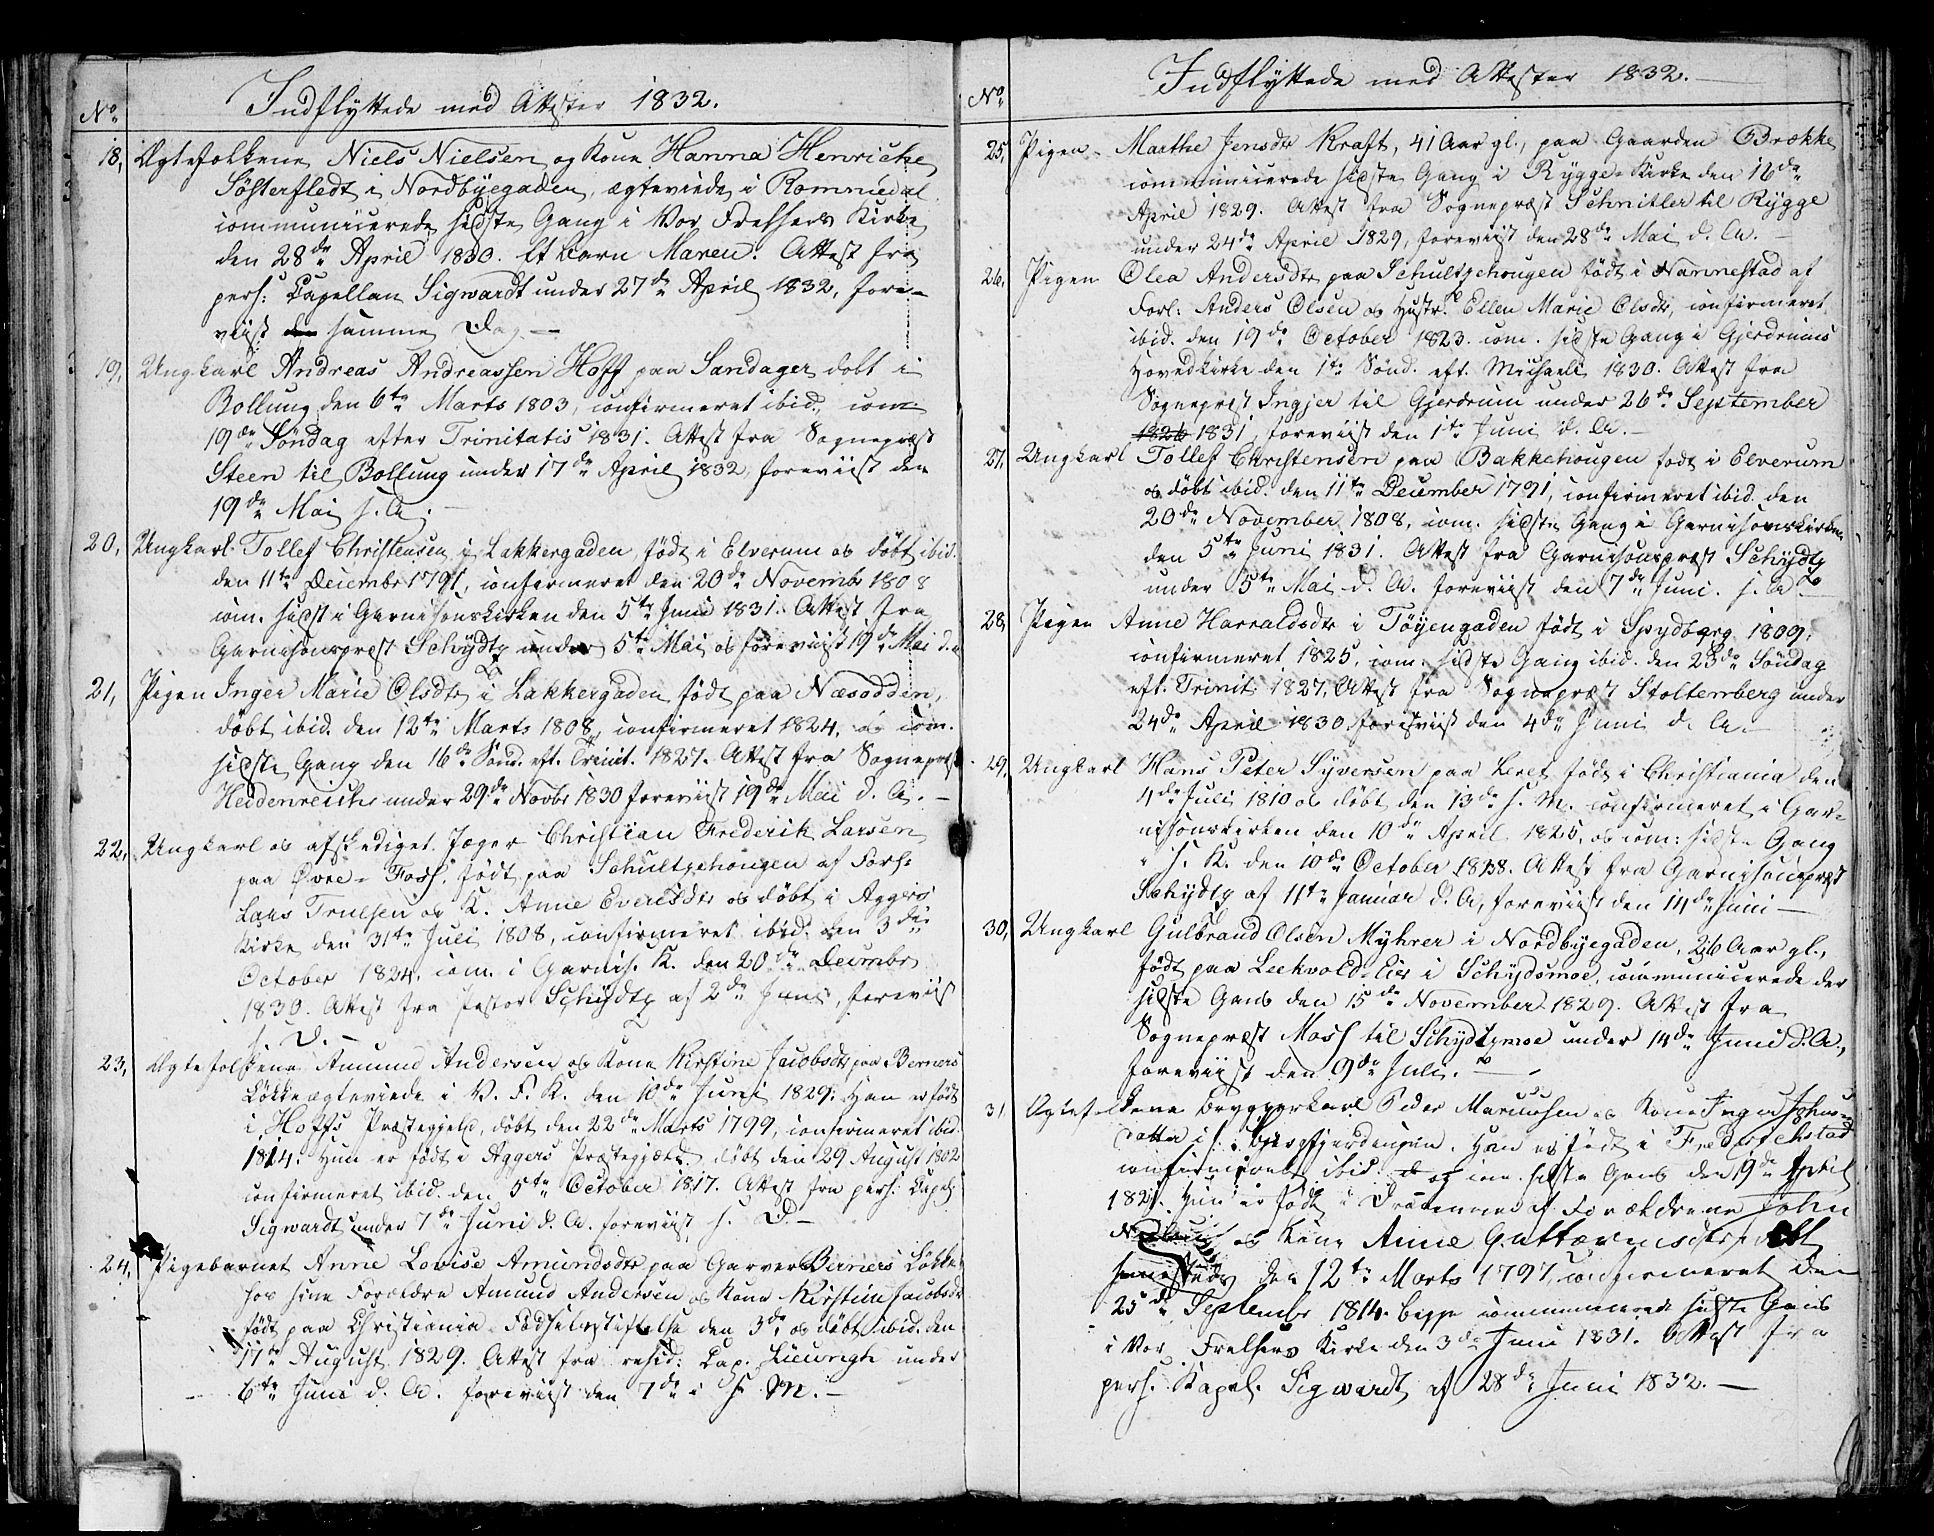 Indflyttede med Attester 1832.
No.
18, Ægtefolkene Niels Nielsen og Kone Hanna Henriche
Søsterfledt i Nordbyegaden, ægteviede i Romnedal
communicerede sidste Gang i Vor Frelsers Kirke
den 28de April 1830. Et Barn Maren. Attest fra
pers: Capellan Sigwardt under 27de April 1832, fore-
viist samme Dag. —
19, Ungkarl Andreas Andreassen Hoff paa Sandager døbt i
Bollung den 6te Marts 1803, confirmeret ibid., com.
19de Søndag efter Trinitatis 1831. Attest fra Sognepræst
Steen til Bollung under 17de April 1832, foreviist den
19de Mai s. A. —
20, Ungkarl Tollef Christensen i Lakkergaden født i Elverum og døbt ibid.
den 11te Decembr 1791, confirmeret den 20de Novembr 1808
com. sidst i Garnisonskirken den 5te Juni 1831. Attest fra
Garnisonspræst Schydtz under 5te Mai og foreviist 19de Mai d. A.
21, Pigen Inger Marie Olsdtr i Lakkergaden født paa Næsodden,
døbt ibid. den 12te Marts 1808, confirmeret 1824, og com.
sidste Gang den 16de Sønd. eft. Trinit. 1827. Attest fra Sognepræst
Heidenreich under 29de Novbr 1830 foreviist 19de Mai d. A. —
22, Ungkarl og afskediget Jæger Christian Frederik Larsen
paa Øvre-Foss, født paa Schultzehougen af Fors:
Lars Trulsen og K. Anne Evensdtr og døbt i Aggers
Kirke den 31te Juli 1808, confirmeret ibid. den 3die
October 1824. com. i Garnis. K. den 20de Decembr
1830. Attest fra Pastor Schydtz af 2de Juni, foreviist
s. D. —
23, Ægtefolkene Amund Andersen og Kone Kirstine Jacobsdtr paa Berners
Løkke ægteviede i V. F. K. den 10de Juni 1829. Han er født
i Hoffs Præstegjeld, døbt den 22de Marts 1799, confirmeret ibid.
1814. Hun er født i Aggers Præstegjeld, døbt den 29 August 1802
confirmeret ibid. den 5te October 1817. Attest fra pers. Capel.
Sigwardt under 7de Juni d. A. foreviist s. D. —
24, Pigebarnet Anne Lovise Amundsdtr paa Garver Berners Løkke
hos sine Forældre Amund Andersen og Kone Kirstine Jacobsdtr
født paa Christiania Fødselsstiftelse den 3de og døbt ibid. den
17de August 1829. Attest fra resid: Cap. under
6te Juni d. A. foreviist den 7de i s. M. —
Indflyttede med Attester 1832. —
No.
25, Pigen Marthe Jensdtr Kraft, 41 Aar gl., paa Gaarden Brække
communicerede sidste Gang i Rygge-Kirke den 16de
April 1829. Attest fra Sognepræst Schnitler til Rygge
under 24de April 1829, foreviist den 28de Mai d. A. —
26, Pigen Olea Andersdtr paa Schultzehougen født i Nannestad af
Forl: Anders Olsen og Hustr. Ellen Marie Olsdtr, confirmeret
ibid. den 19de October 1823. com. sidste Gang i Gjerdrums
Hovedkirke den 1te Sønd. eft. Michaeli 1830. Attest fra
Sognepræst Ingjer til Gjerdrum under 26de September
1826 1831 foreviist den 1te Juni d. A. —
27, Ungkarl Tollef Christensen paa Bakkehougen født i Elverum
og døbt ibid. den 11te December 1791, confirmeret ibid. den
20de November 1808, com. sidste Gang i Garnisonskirken
den 5te Juni 1831. Attest fra Garnisonspræst Schydtz
under 5te Mai d. A. foreviist den 7de Juni s. A.
28, Pigen Anne Harraldsdtr i Tøyengaden født i Spydberg 1809.
confirmeret 1825, com. sidste Gang ibid. den 23de Søndag
eft. Trinit. 1827. Attest fra Sognepræst Stoltenberg under
24de April 1830 foreviist den 4de Juni d. A. —
29, Ungkarl Hans Peter Syversen paa Leret født i Christiania den
4de Juli 1810 og døbt den 13de s. M. confirmeret i Gar-
nisonskirken den 10de April 1825, og com: sidste Gang
i s. K. den 10de October 1838. Attest fra Garnisonspræst
Schydtz af 11te Januar d. A, foreviist den 14de Juni —
30, Ungkarl Gulbrand Olsen Myhrer i Nordbyegaden, 26 Aar gl.,
født paa Leekvold-Eier i Schydsmoe, communicerede der
sidste Gang den 15de November 1829. Attest fra
Sognepræst Moss til Schydtzmoe under 14de Juni d. A.,
foreviist den 9de Juli.
31 Ægtefolkene Bryggerkarl Peder Marcussen og Kone Inger Johns-
datter i Han er født i Frederichstad
confirmeret ibid. og com. sidste Gang den 19de April
1821. Hun er født i Drammen af Forældrene John
og Kone Anne Guttormsdtr, døbt
sammesteds den 12te Marts 1797, confirmeret den
25de Septembr 1814. Begge communicerede sidste Gang
i Vor Frelsers Kirke den 3de Juni 1831. Attest fra
pers. Kapel. Sigwardt af 28de Juni 1832. —